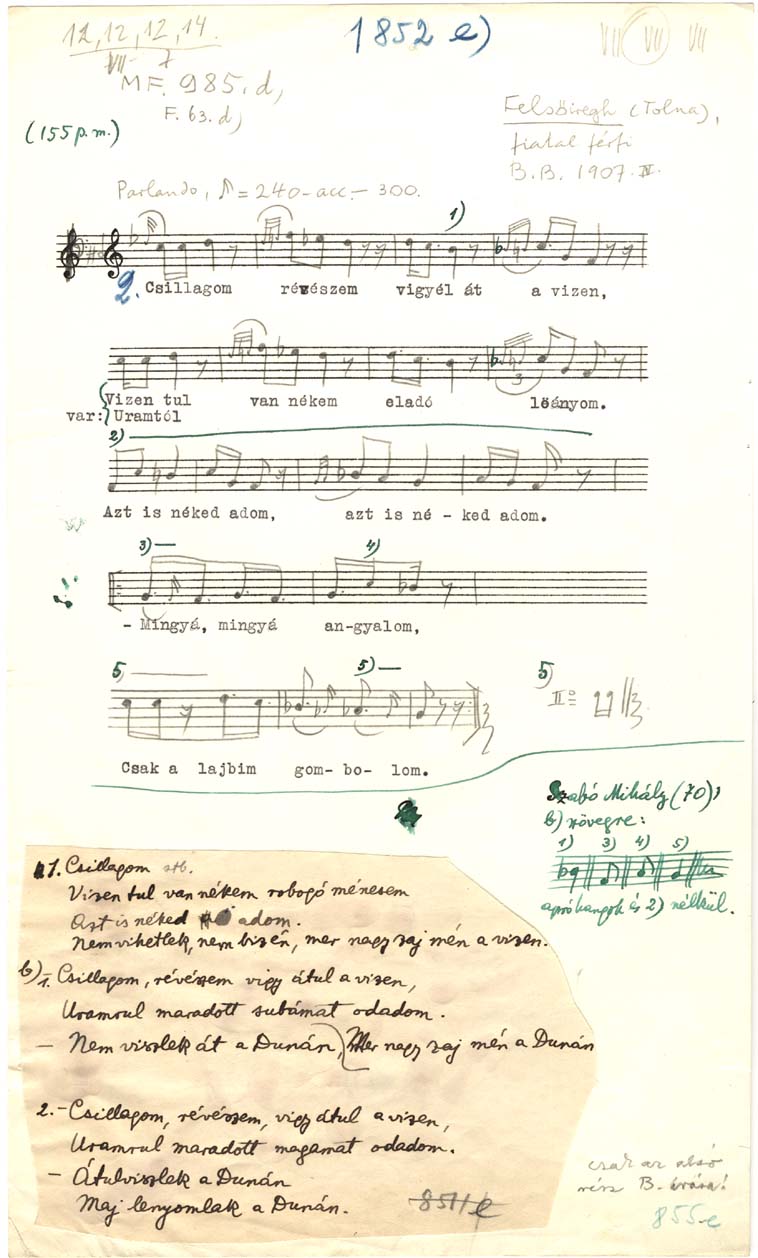 12, 12, 12, 14.
VII 7
1852 e)
VII VII VII
MF. 985. d,
F. 63. d,
(155 p.m.)
Felsőiregh (Tolna),
fiatal férfi
B.B. 1907. IV.
Parlando, ♪ = 240 - acc. - 300.
1)
2. Csillagom révészem vigyél át a vizen,
Vizen tul van nékem eladó leányom.
var: Uramtól
2)
Azt is néked adom, azt is né - ked adom.
3) 4)
- Mingyá, mingyá an-gyalom,
5) 5)
5)
IIº
Csak a lajbim gom- bo- lom.
Szabó Mihály (70),
b) szövegre:
1) 3) 4) 5)
apróhangok és 2) nélkül.
1. Csillagom stb.
Vizen tul van nékem robogó ménesem
Azt is néked adom.
Nem vihetlek, nem bizén, mer nagy zaj mén a vizen.
b) 1. - Csillagom, révészem vigy átul a vizen,
Uramrul maradott subámat odadom.
- Nem viszlek át a Dunán, Mer nagy zaj mén a Dunán
2. - Csillagom, révészem, vigy átul a vizen,
Uramrul maradott magamat odadom.
- Átulviszlek a Dunán
Maj lenyomlak a Dunán.
csak az alsó
rész B. írása!
855-e